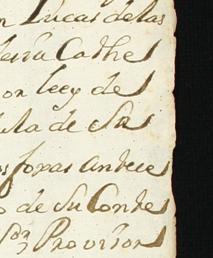 n Lucas de las
Cathe
on leey de
de Su
foxas antece
o de Su Conte
Sor Provisor